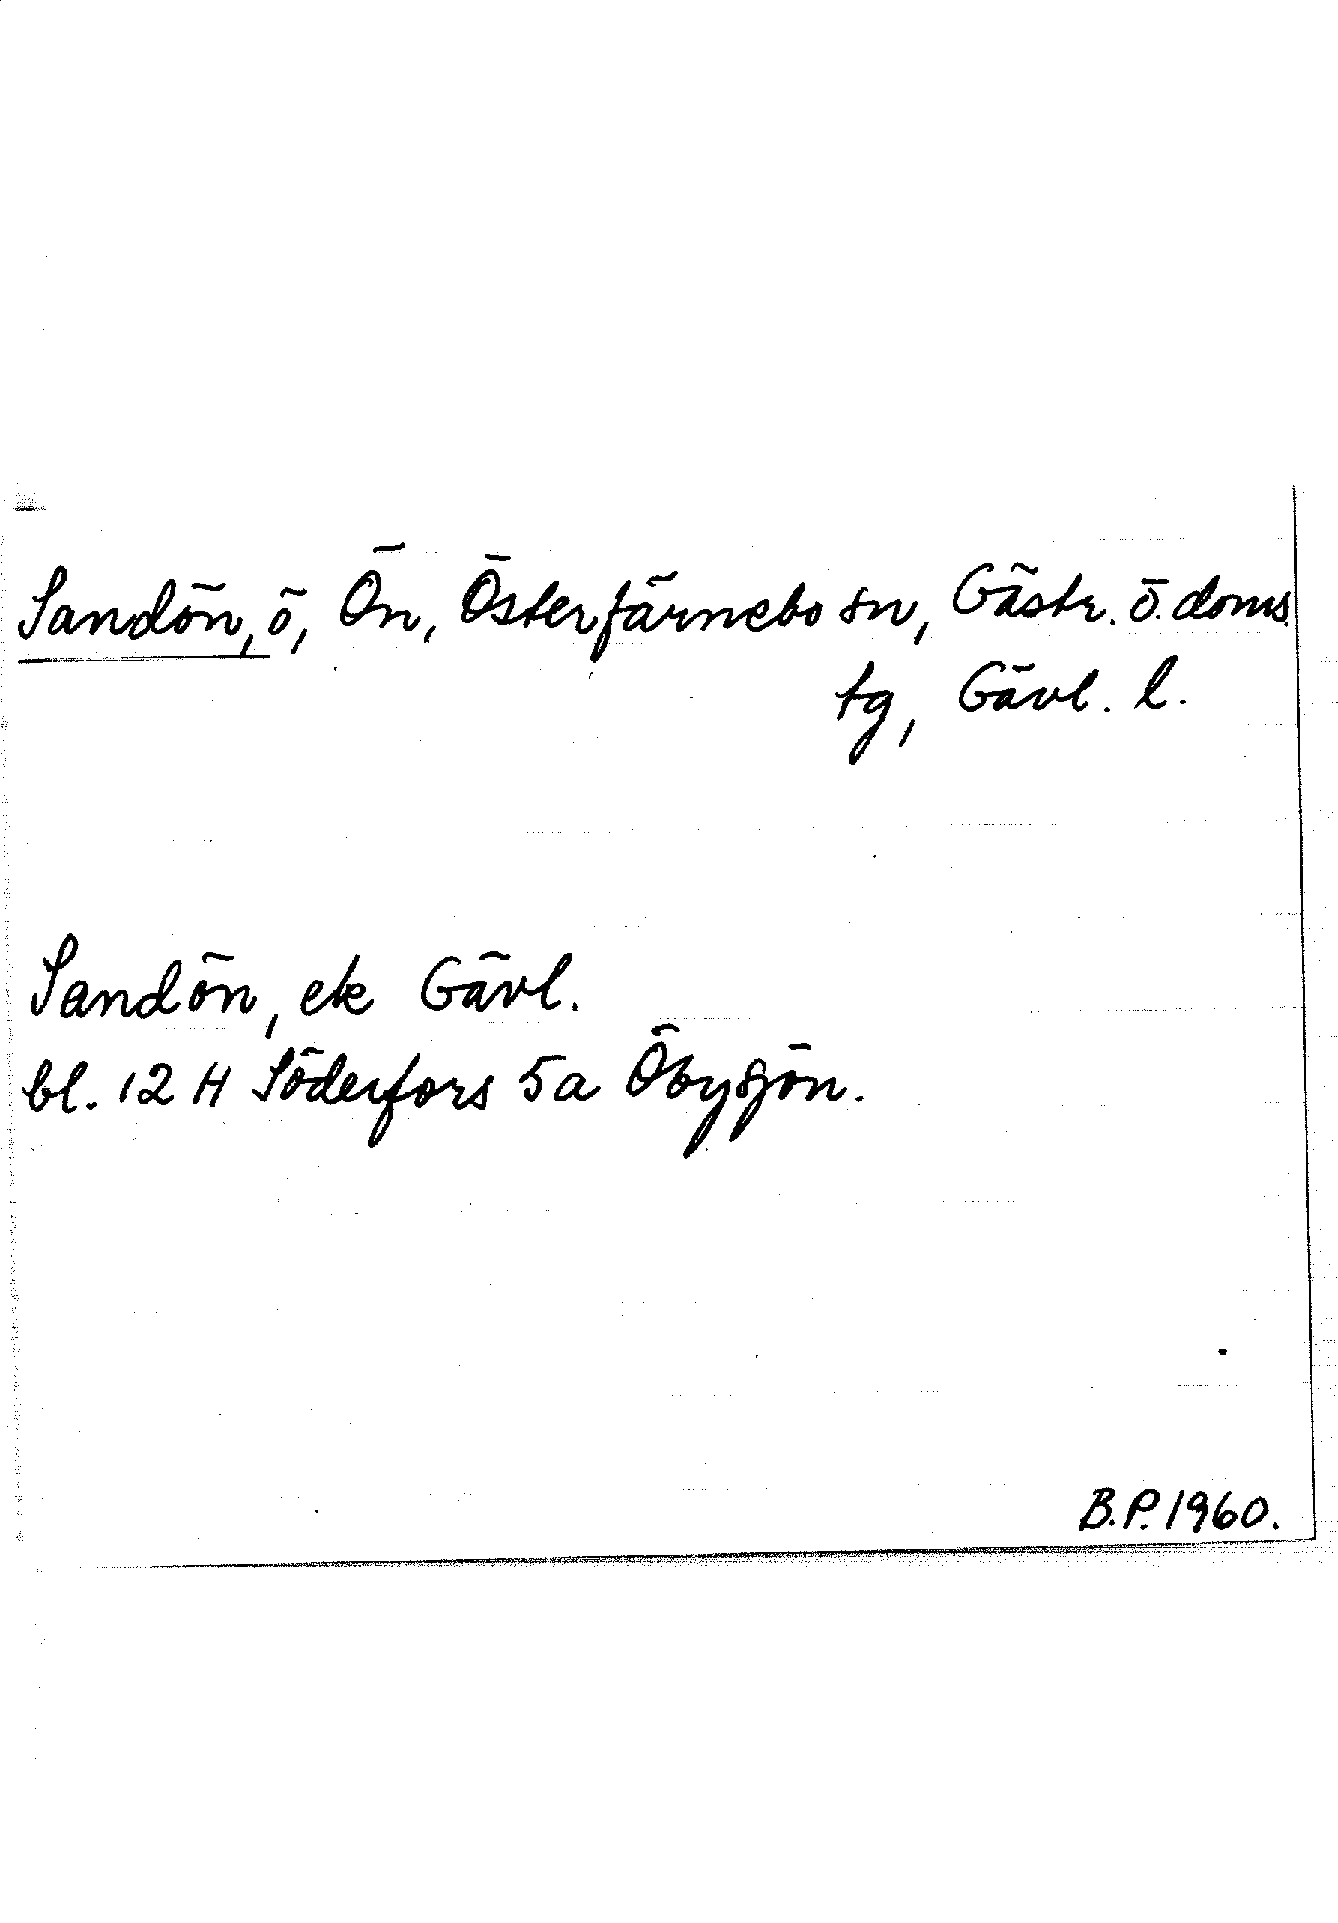 Sandön, ö, Ön, Österfärnebo sn, Gästr. ö. doms.
tg, Gävl. l.
Sandön, ek Gävl.
bl. 12 H Söderfors 5a Öbysjön.
B.P. 1960.